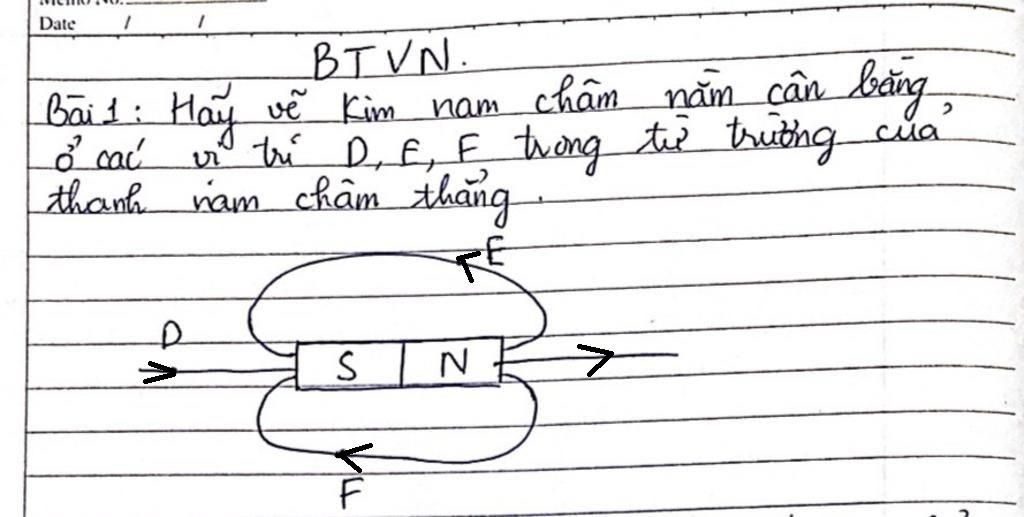 Date / /
BTVN.
Bài 1: Hãy vẽ kim nam châm nằm cân bằng
ở các vị trí D, E, F trong từ trường của
thanh nam châm thẳng.
E
D
S N
F